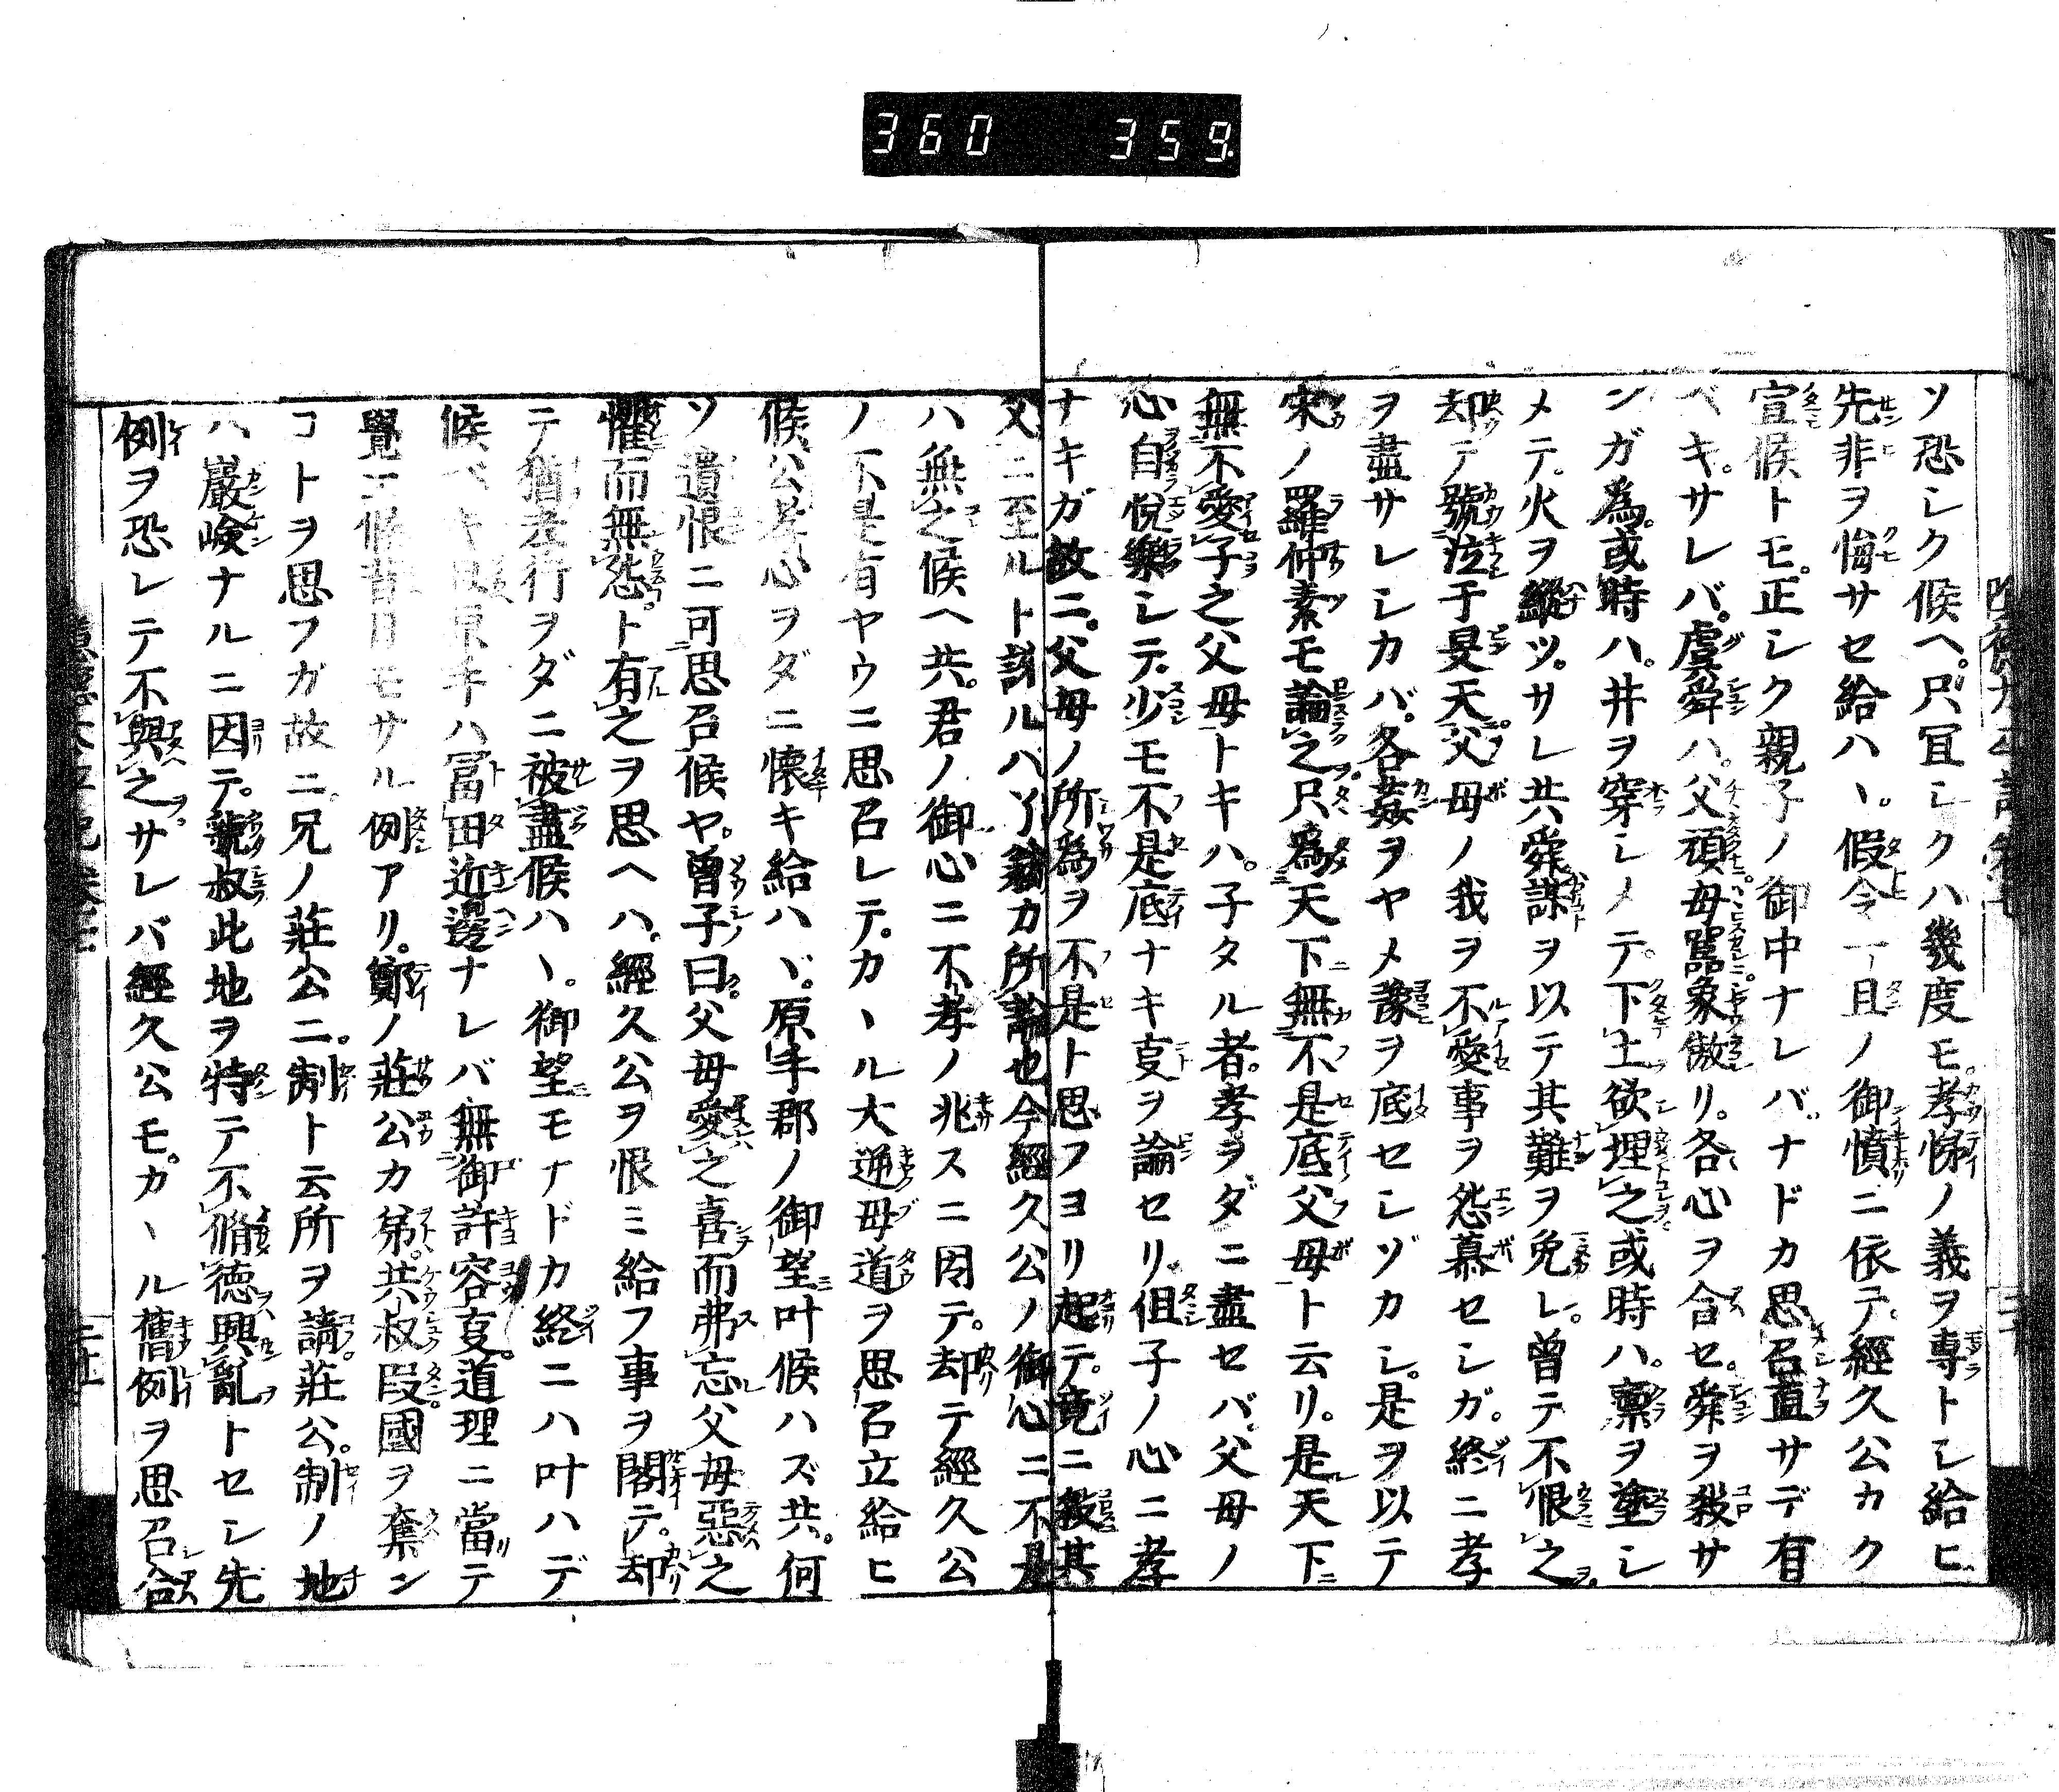 360 359
ソ恐レク候ヘ。只冝シクハ幾度モ。孝悌ノ義ヲ専トシ給ヒ
先非ヲ悔サセ給ハヽ。假令一旦ノ御憤ニ依テ。經久公カク
宣候トモ。正シク親子ノ御中ナレバ。ナドカ思召直サデ有
ベキ。サレバ。虞舜ハ。父頑母嚚象傲リ。各心ヲ合セ。舜ヲ殺サ
ンガ為。或時ハ。井ヲ穿シメテ。下土欲埋之或時ハ。稟ヲ塗シ
メテ。火ヲ縱ツ。サレ共舜謀ヲ以テ其難ヲ免レ。曽テ不恨之
却テ號泣于旻天。父母ノ我ヲ不愛事ヲ怨慕セシガ。終ニ孝
ヲ盡サレシカバ。各姦ヲヤメ豫ヲ底セシヅカシ。是ヲ以テ
宋ノ羅仲素モ論之只為天下無不是底父母ト云リ。是天下
無不愛子之父母トキハ。子タル者。孝ヲダニ盡セバ。父母ノ
心自悦樂シテ。少モ不是底ナキ叓ヲ論セリ。伹子ノ心ニ孝
ナキガ故ニ。父母ノ所為ヲ不是ト思フヨリ起テ。竟ニ殺其
父ニ至ルト謝ルハ了翁カ所論也今經久公ノ御心ニ不是
ハ無之候ヘ共。君ノ御心ニ不孝ノ兆スニ因テ。却テ經久公
ノ不是有ヤウニ思召レテ。カヽル大逆毋道ヲ思召立給ヒ
候。公孝心ヲダニ懐キ給ハヾ。原手郡ノ御望叶候ハズ共。何
ソ遺恨ニ可思召候ヤ。曽子曰。父母愛之喜而弗忘父母惡之
懼而無怨。ト有之ヲ思ヘハ。經久公ヲ恨ミ給フ事ヲ閣テ。却
テ猶孝行ヲダニ被盡候ハヽ。御望モナドカ終ニハ叶ハデ
候ベキ 原手ハ冨田近邊ナレバ無御許容叓。道理ニ當テ
覺エ候昔日モサル例アリ。鄭ノ莊公カ弟。共叔段國ヲ奪ン
コトヲ思フガ故ニ兄ノ莊公ニ。制ト云所ヲ請。莊公。制ノ地
ハ嚴険ナルニ因テ。虢叔此地ヲ特テ不脩徳興亂トセシ先
例ヲ恐レテ不與之。サレバ經久公モ。カヽル舊例ヲ思召合